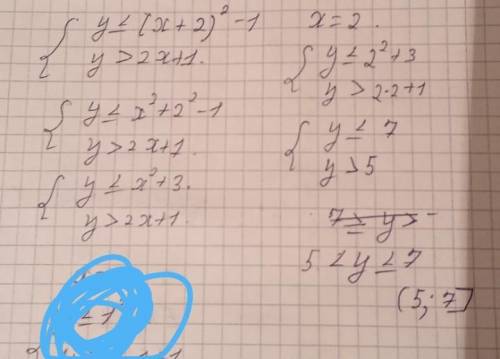 y ≤ (x+2)² -1
y > 2x+1.
y ≤ x²+2²-1
y > 2x+1.
y ≤ x²+3.
y > 2x+1.
≤ 7
x = 2.
y ≤ 2²+3
y > 2·2+1
y ≤ 7
y > 5
7 ≥ y > -
5 < y ≤ 7
(5; 7]